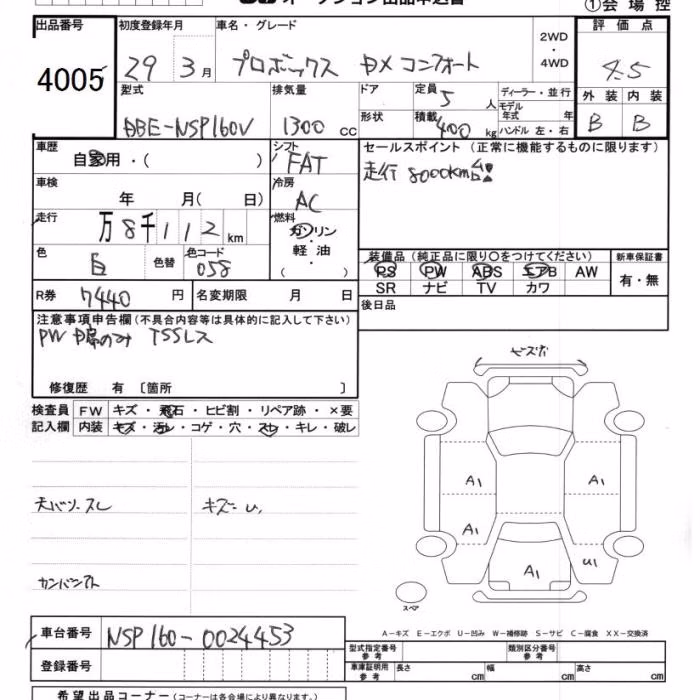 ①会場控
出品番号 初度登録年月 車名・グレード 2WD・4WD 評価点
4005 29 3月 プロボックス DXコンフォート 4.5
型式 排気量 ドア 定員 5 人 ディーラー・並行 外装 内装
DBE-NSP160V 1300 cc 形状 積載 400 kg モデル年式 年 ハンドル 左・右 B B
車歴 自家用・( ) シフト FAT セールスポイント(正常に機能するものに限ります)
車検 年 月( 日) 冷房 AC 走行 8000km台!
走行 万8千112km 燃料 ガソリン・軽油・( )
色 白 色替 色コード 058 装備品(純正品に限り○をつけてください) 新車保証書
PS PW ABS エアB AW 有・無
SR ナビ TV カワ
R券 7440 円 名変期限 月 日 後日品
注意事項申告欄(不具合内容等は具体的に記入して下さい)
PW D席のみ TSSレス
修復歴 有 〔箇所 〕
検査員 FW キズ・飛石・ヒビ割・リペア跡・×要
記入欄 内装 キズ・汚レ・コゲ・穴・スレ・キレ・破レ
A1 A1
A1 U1
A1
スペア
A-キズ E-エクボ U-凹み W-補修跡 S-サビ C-腐食 XX-交換済
車台番号 NSP160-0024453
登録番号
型式指定番号 参考 類別区分番号 参考
車庫証明用 参考 長さ cm 幅 cm 高さ cm
希望出品コーナー(コーナーは各会場により異なります。)